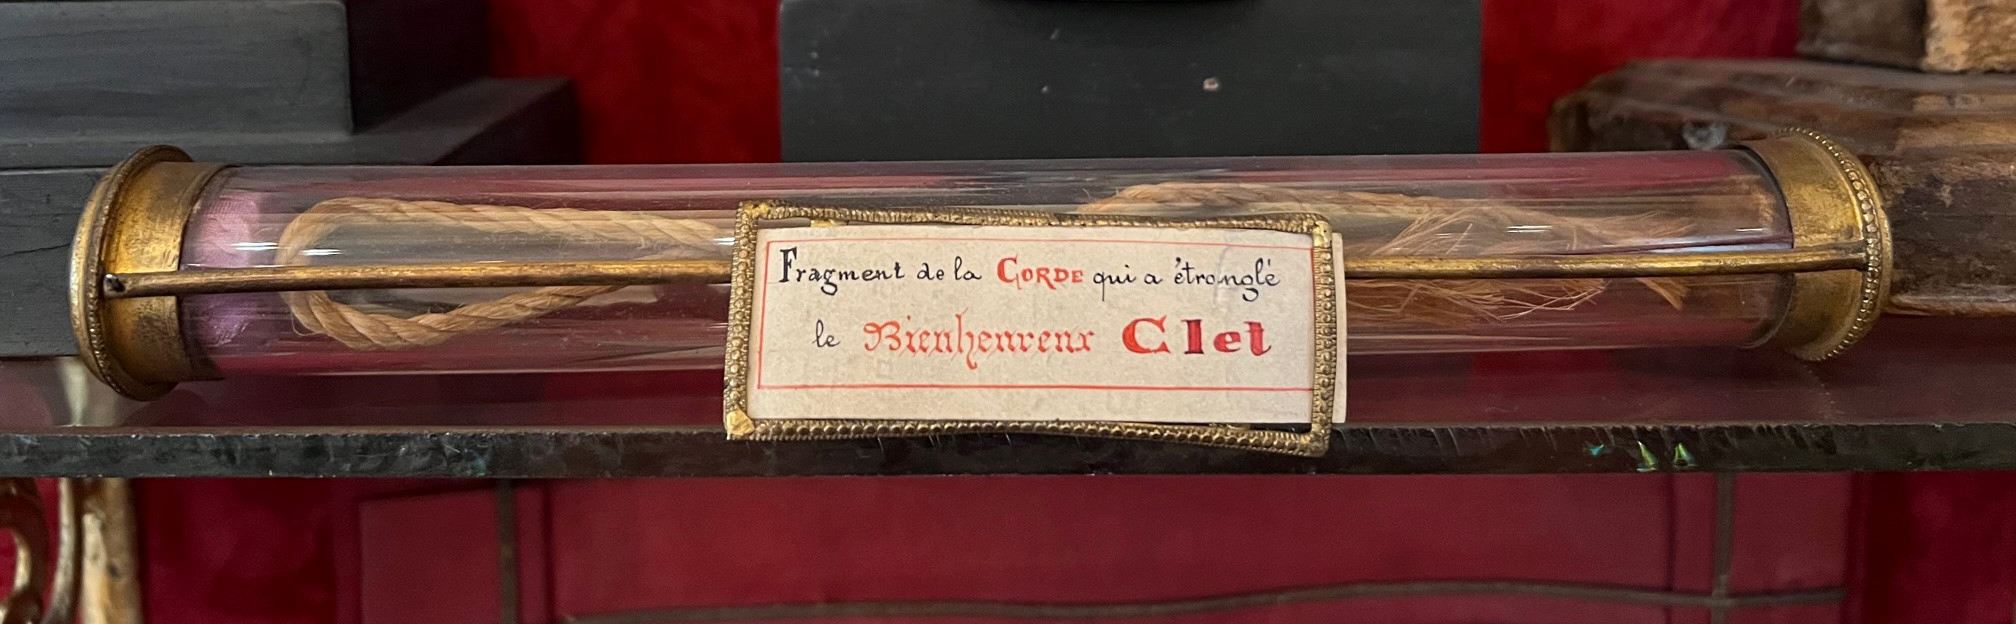 Fragment de la CORDE qui a étranglé
le Bienheureux Clet